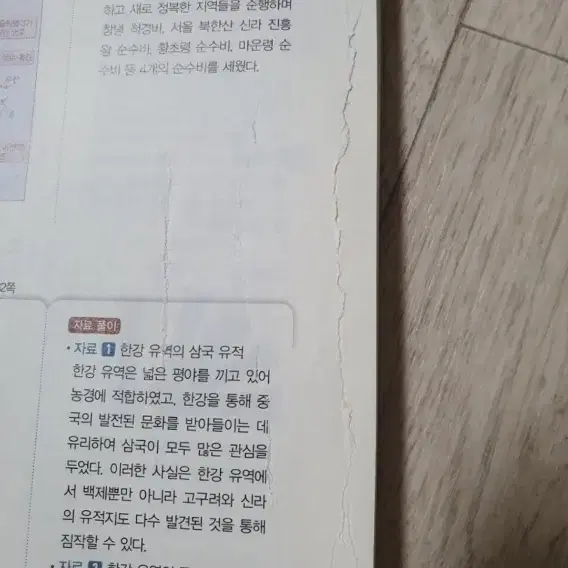 하고 새로 정복한 지역들을 순행하며
창녕 척경비, 서울 북한산 신라 진흥
왕 순수비, 황초령 순수비, 마운령 순
수비 등 4개의 순수비를 세웠다.
2쪽
자료 풀이
• 자료 1 한강 유역의 삼국 유적
한강 유역은 넓은 평야를 끼고 있어
농경에 적합하였고, 한강을 통해 중
국의 발전된 문화를 받아들이는 데
유리하여 삼국이 모두 많은 관심을
두었다. 이러한 사실은 한강 유역에
서 백제뿐만 아니라 고구려와 신라
의 유적지도 다수 발견된 것을 통해
짐작할 수 있다.
• 자료 2 한강 유역의